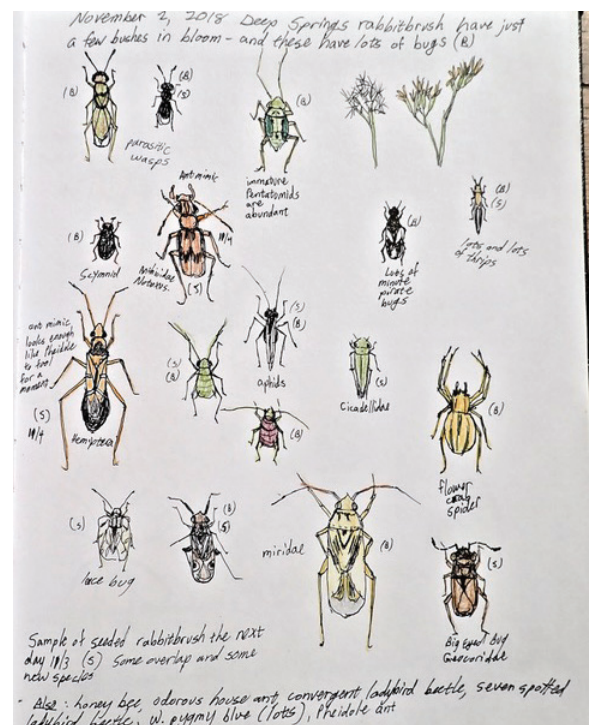 November 2, 2018 Deep Springs rabbitbrush have just
a few bushes in bloom - and these have lots of bugs (B)
(B)
(B)
(S)
parasitic
wasps
(B)
immature
Pentatomids
are
abundant
Ant mimic
11/4
(S)
Notoxus
(B)
Scymnid
(B)
Lots of
minute
pirate
bugs
(B)
(S)
lots and lots
of thrips
ant mimic
looks enough
like Pheidole
to fool
for a
moment
(S)
11/4
Hemiptera
(S)
(B)
(S)
(B)
aphids
(B)
(S)
Cicadellidae
(B)
flower
crab
spider
(S)
lace bug
(B)
(S)
miridae
(B)
(S)
Big Eyed Bug
Geocoridae
Sample of seeded rabbitbrush the next
day 11/3 (S) Some overlap and some
new species
- Also: honey bee, odorous house ant, convergent ladybird beetle, seven spotted
ladybird beetle, w. pygmy blue (lots), Pheidole ant